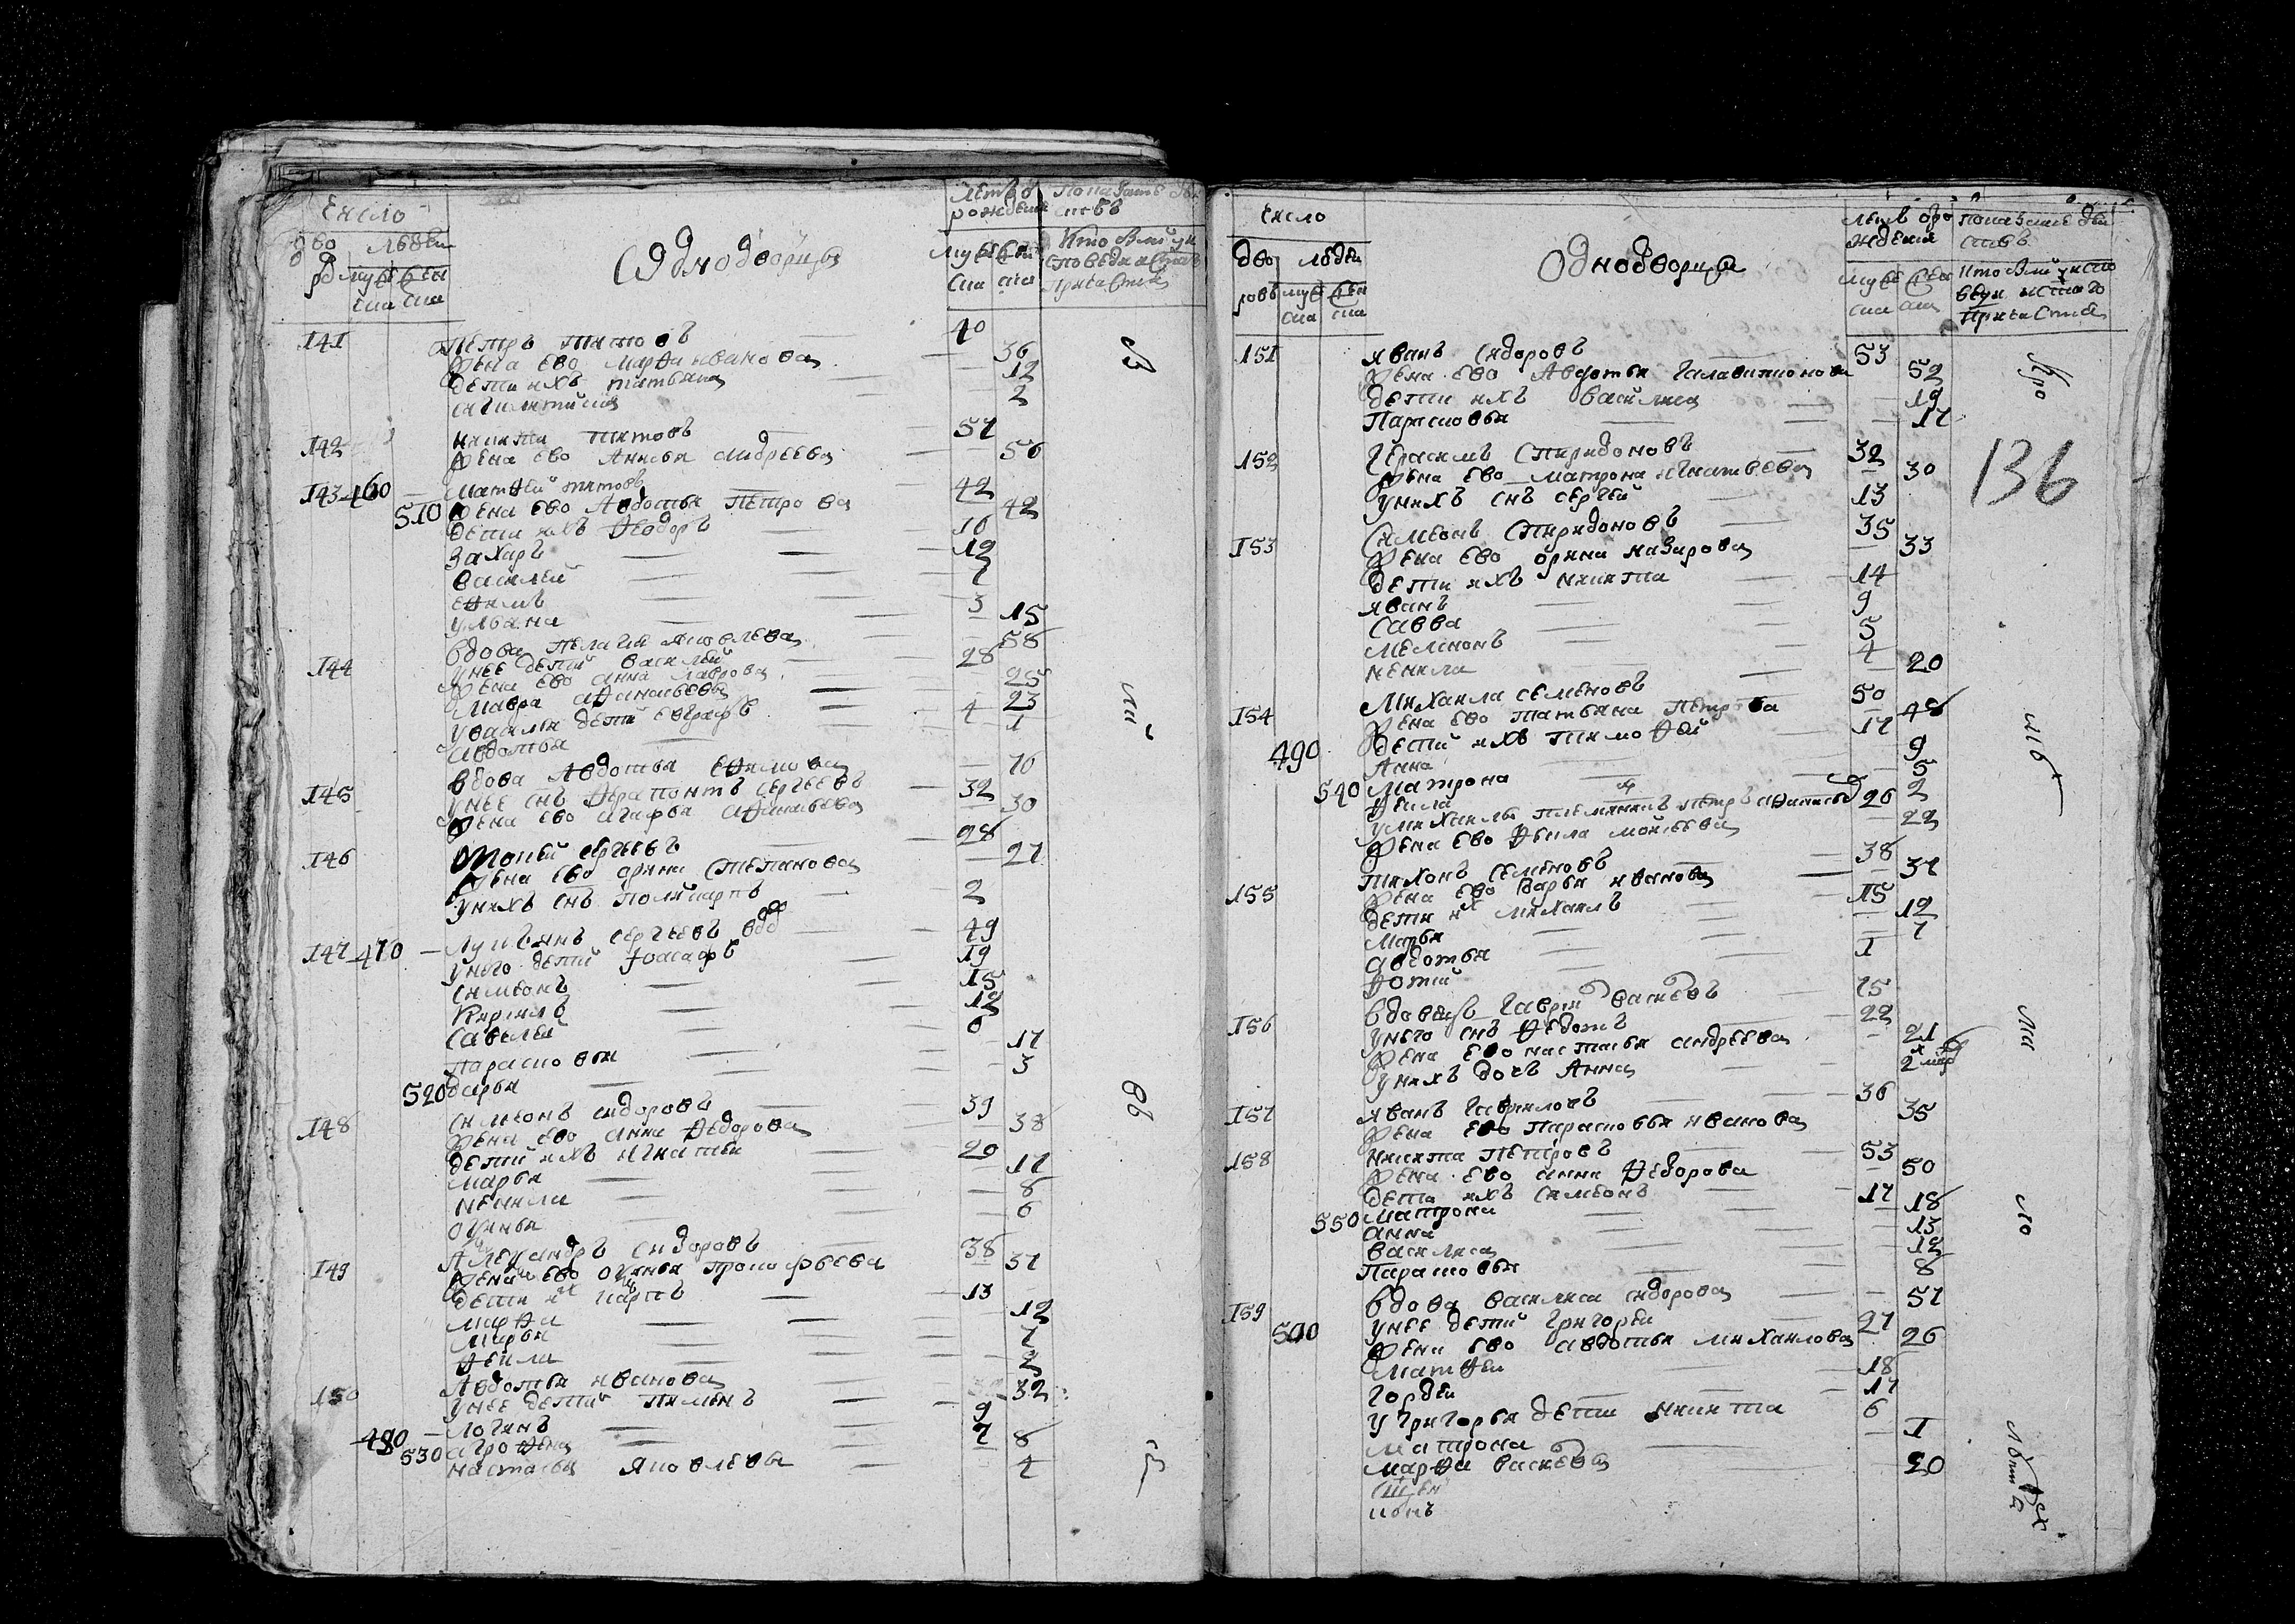 Число
Дво ров
людеи
муже ска
жен ска
Однодворцы
Летъ от рождения
муже ска
жен ска
Показание действъ
Кто был у исповеди и святаго причастия
141 Петръ Титовъ 40
Жена ево Марфа Иванова 36
Дети ихъ Татьяна 12
2
142 Никита Титовъ 57
Жена ево Анисья Андреева 56
143 460 Матфей Титовъ 42
510 Жена ево Авдотья Петрова 42
Дети ихъ Феодоръ 16
Захаръ 12
Василей 7
Ефимъ 3
Ульяна 15
Вдова Пелагия Яковлева 58
144 У нее дети Василей 28
Жена ево Анна Лаврова 25
Мавра Афанасьева 23
У Василья дети Евграфъ 4
Авдотья 1
Вдова Авдотья Ефимова 70
145 У нее снъ Ферапонтъ Сергеевъ 32
Жена ево Агафья Афанасьева 30
146 Мокей Сергеевъ 28
Жена ево Орина Степанова 27
У нихъ снъ Поликарпъ 2
147 470 Лукьянъ Сергеевъ вдо 49
У него дети Іоасафъ 19
Симеонъ 15
Кирилъ 12
Савелей 6
Парасковья 17
520 Дарья 3
148 Симеонъ Сидоровъ 39
Жена ево Анна Федорова 38
Дети ихъ Игнатей 20
Марья 17
Ненила 8
6
149 Александръ Сидоровъ 38
Жена ево Прокофьева 37
Дети их Карпъ 13
Марфа 12
Марья 7
Фекла
150 Авдотья Иванова 32
У нее дети Пименъ 9
480 Логинъ 7
530 Агрофена 8
Настасья Яковлева 4
Число
дво ровъ
людеи
муже ска
жен ска
Однодворцы
летъ от рождения
муже ска
жен ска
показание действъ
Кто был у исповеди и святаго причастия
136
151 Иванъ Сидоровъ 53
Жена ево Авдотья Галактионова 52
дети ихъ Василиса 19
Парасковья 17
152 Герасимъ Спиридоновъ 32
Жена ево Матрона Игнатьева 30
У нихъ снъ Сергей 13
153 Симеонъ Спиридоновъ 35
Жена ево Орина Назарова 33
Дети ихъ Никита 14
Иванъ 9
Савва 5
4
Ненила 20
154 Михаила Семеновъ 50
Жена ево Татьяна Петрова 48
490 Дети ихъ Тимофей 17
Анна 9
540 Матрона 5
Фекла 2
У Михаилы племянникъ Петръ Афанасьев 26
Жена ево Фекла Моисеева 22
155 Тихонъ Семеновъ 38
Жена ево Дарья Иванова 37
дети их Михаилъ 15
Марья 12
Авдотья 7
Фотий 1
Вдовецъ Гаврил Васильевъ 75
156 У него снъ Федотъ 22
Жена ево Настасья Андреева 21
У нихъ дочь Анна 2
157 Иванъ Гавриловъ 36
Жена ево Парасковья Иванова 35
158 Никита Петровъ 53
Жена ево Анна Федорова 50
дети ихъ Симеонъ 17
550 Матрона 18
Анна 13
Василиса 12
Парасковья 8
Вдова Василиса Сидорова 57
159 500 У нее дети Григорей 27
Жена ево Авдотья Михаилова 26
Матфеи 18
Гордеи 17
У Григорья дети Никита 6
Матрона 1
Марфа Васильева 20